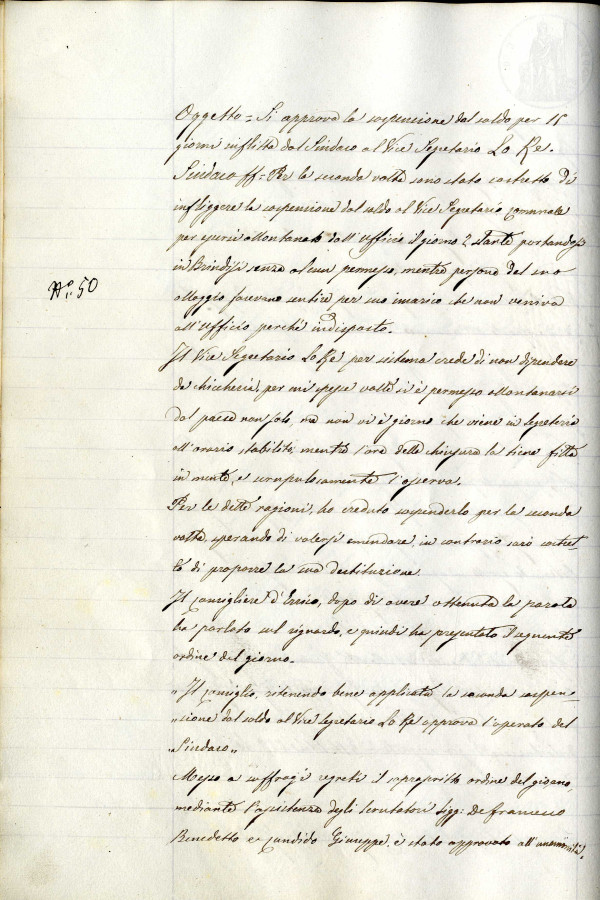 Oggetto = Si approva la sospenzione dal soldo per 15
giorni inflitta dal Sindaco al Vice Segretario Lo Re.
Sindaco ff = Per la seconda volta sono stato costretto di
infliggere la sospenzione dal soldo al Vice Segretario comunale
per essersi allontanato dall'Ufficio il giorno 2 stante portandosi
in Brindisi senza alcun permesso, mentre persona del suo
alloggio facevano sentire per suo incarico che non veniva
all'Ufficio perchè indisposto.
Nº 50
Il Vice Segretario Lo Re per sistema crede di non dipendere
da chicchesia, per cui spesse volte si è permesso allontanarsi
dal paese non solo, ma non vi è giorno che viene in Segreteria
all'orario stabilito, mentre l'ora della chiusura la tiene fitta
in mente, e scrupolosamente l'osserva.
Per le dette ragioni, ho creduto sospenderlo per la seconda
volta, sperando di volersi emendare, in contrario sarò costret-
to di proporre la sua destituzione.
Il Consigliere d'Errico, dopo di avere ottenuta la parola
ha parlato sul riguardo, e quindi ha presentato il seguente
ordine del giorno.
"Il Consiglio, ritenendo bene applicata la seconda sospen-
"zione dal soldo al Vice Segretario Lo Re approva l'operato del
"Sindaco"
Messo a suffragi segreti il soprascritto ordine del giorno,
mediante l'assistenza degli Scrutatori Sigg. De Francesco
Benedetto e Candido Giuseppe, è stato approvato all'unanimità.